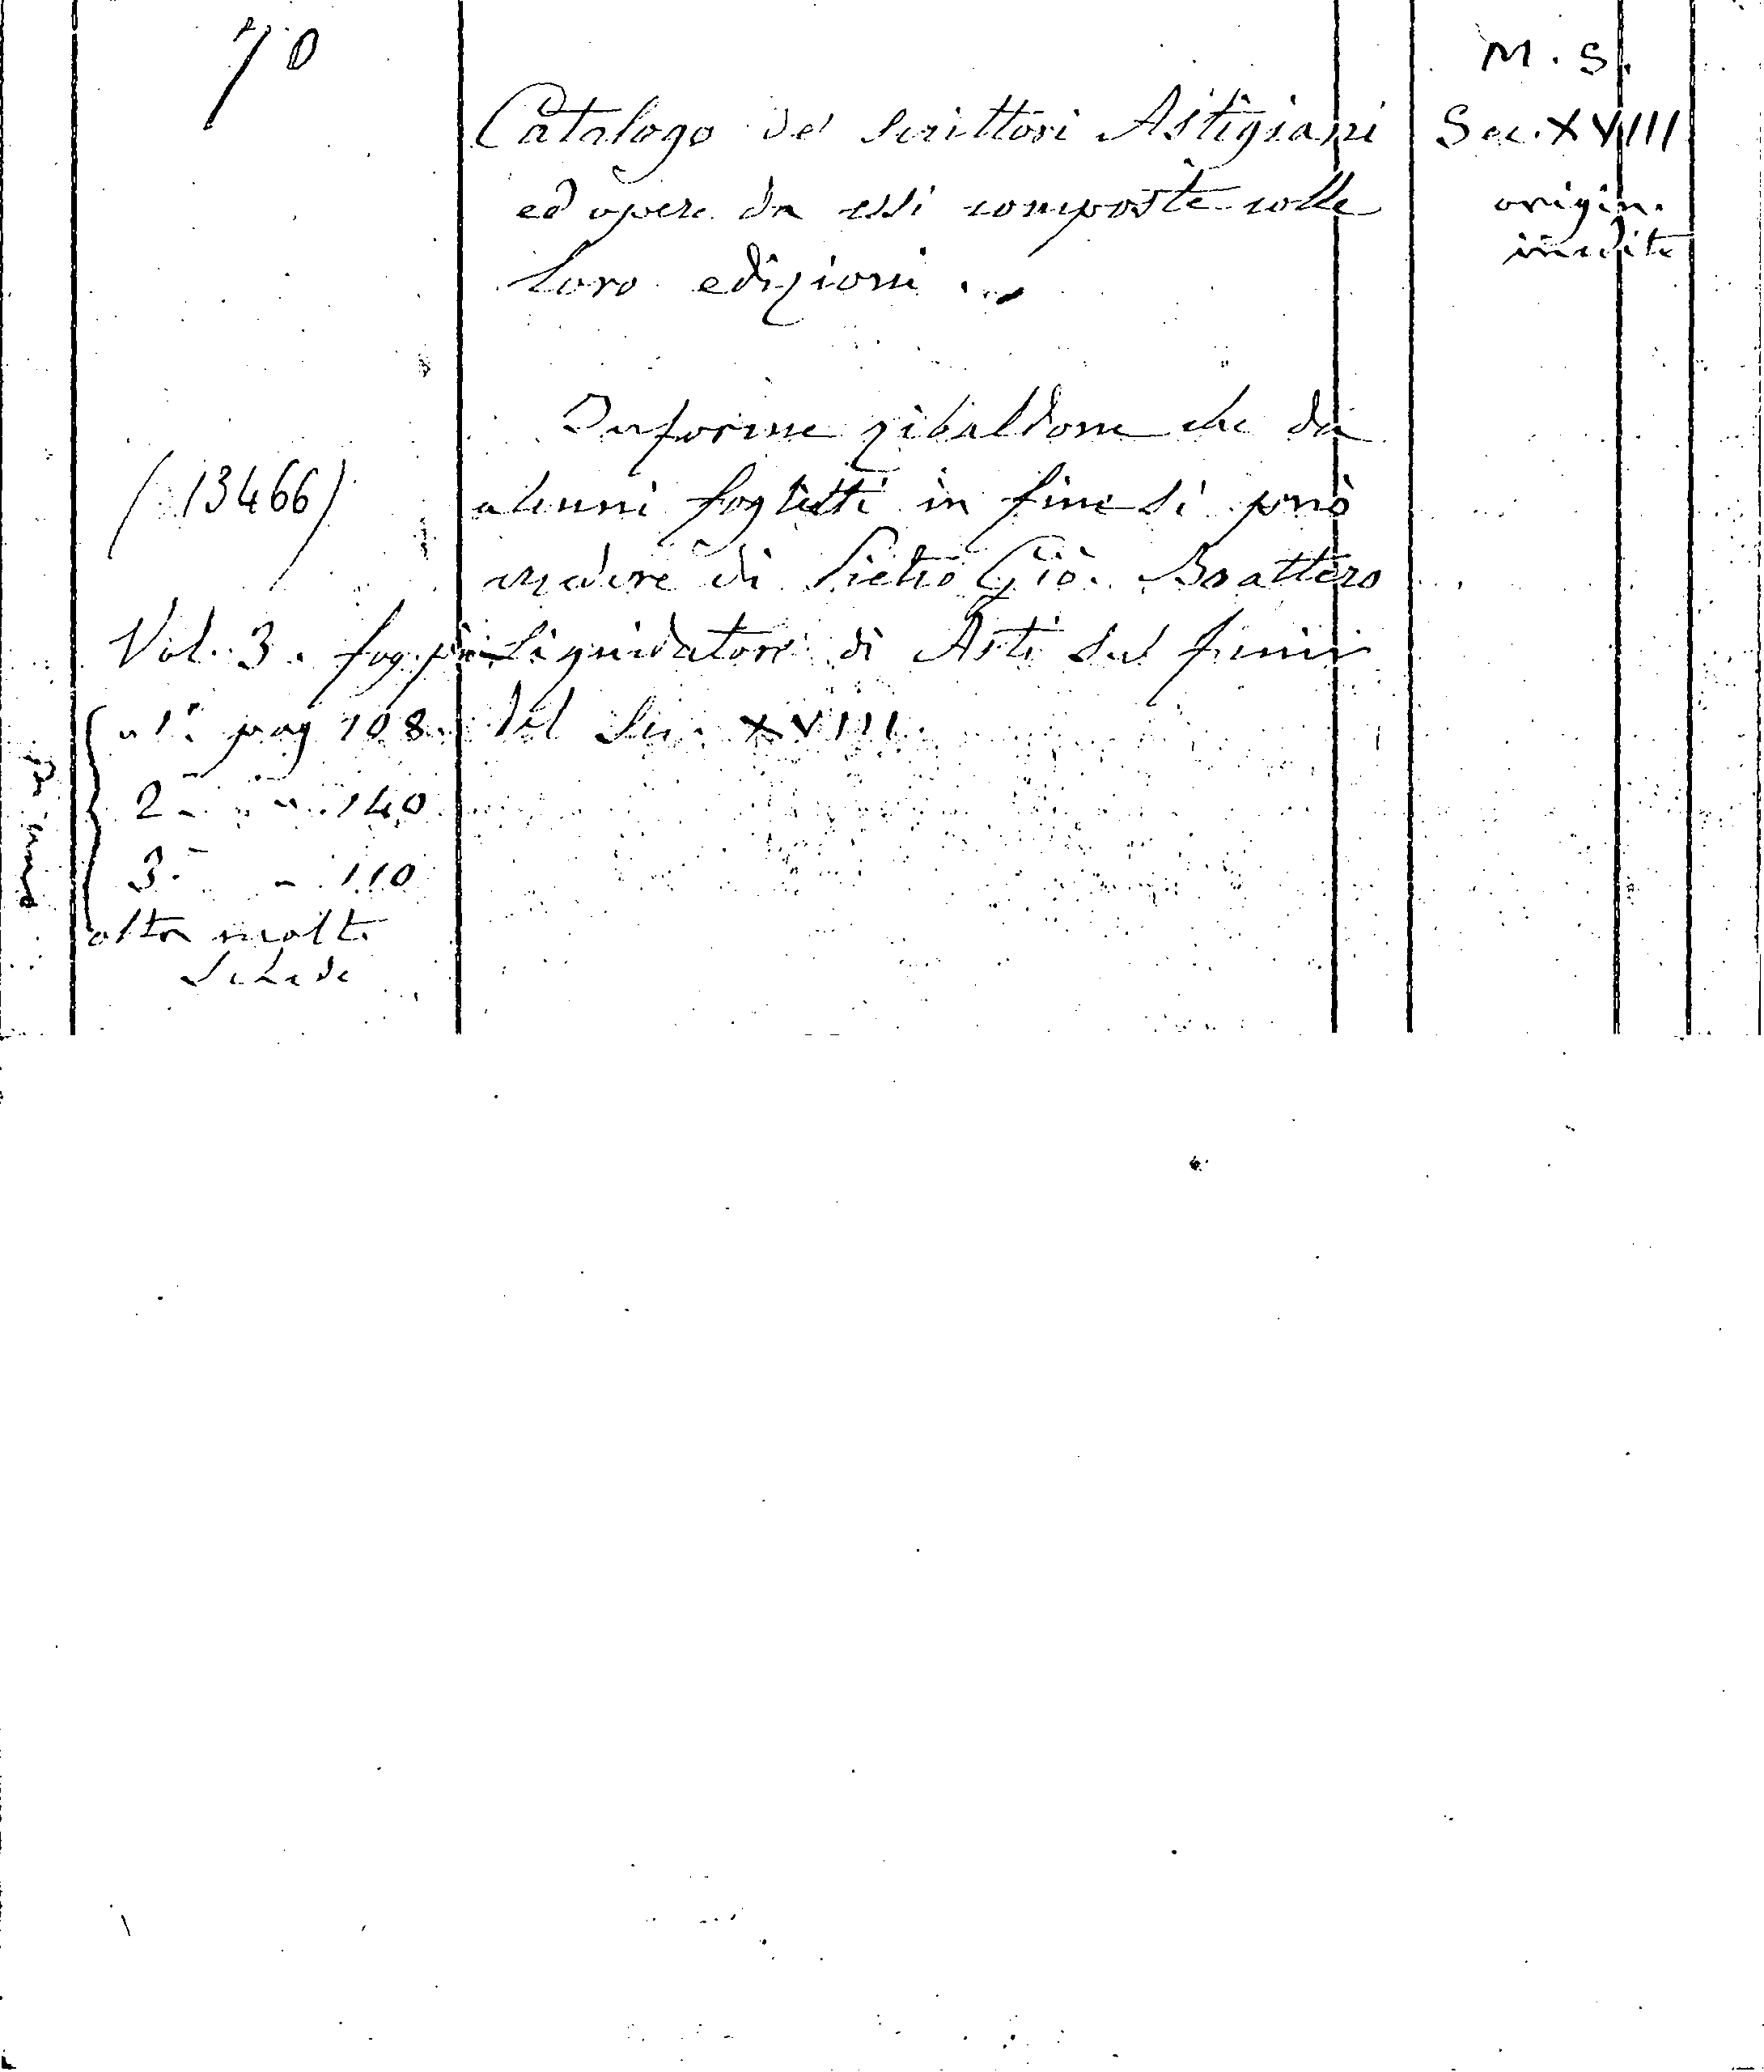 70
M. S.
Catalogo de' Scrittori Astigiani
Sec. XVIII
ed opere da essi composte colle
origin.
loro edizioni
inedite
Informe zibaldone che da
(13466)
alcuni foglietti in fine si può
credere di Pietro Gio. Boattero
Vol. 3. fog. pic.
liquidatore di Asti sul finir
1° pag 108.
del Sec. XVIII.
2° " 140
3° " 110
oltre molte
schede